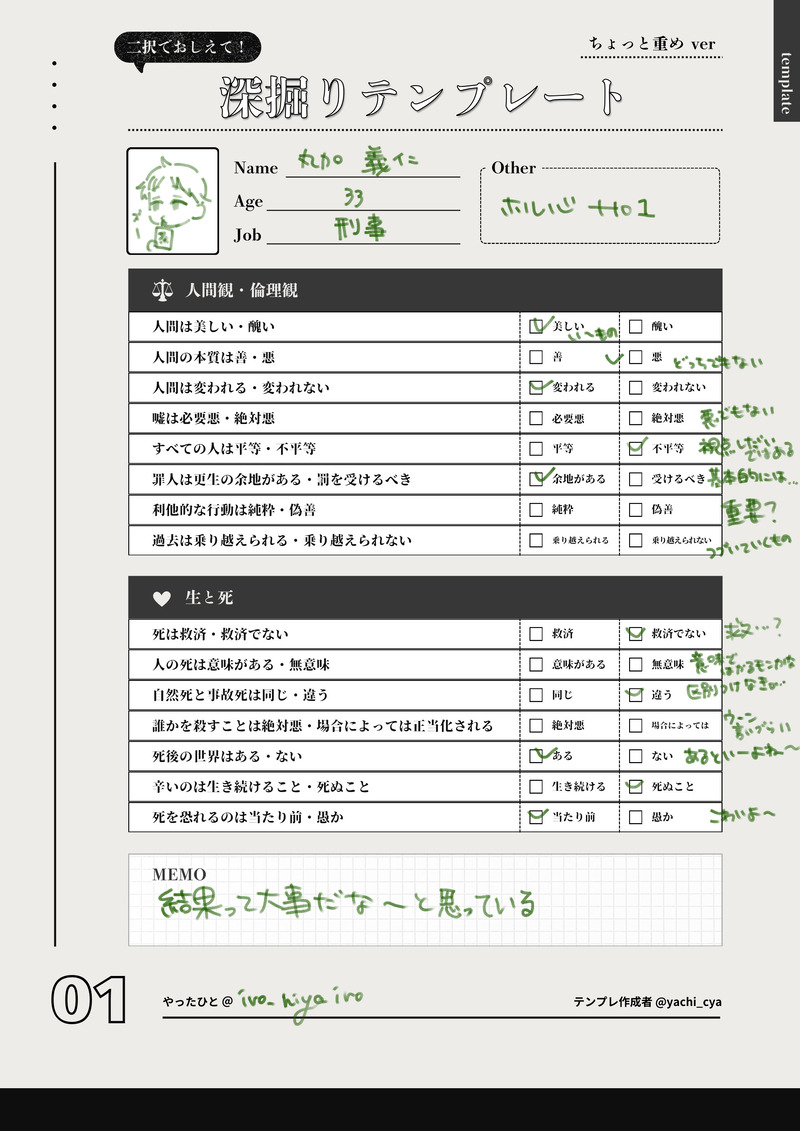 二択でおしえて！
ちょっと重め ver
template
深掘りテンプレート
Name 丸加 義仁
Age 33
Job 刑事
Other
ホル心 No1
人間観・倫理観
人間は美しい・醜い 美しい 醜い
いーもの
人間の本質は善・悪 善 悪 どっちでもない
人間は変われる・変われない 変われる 変われない
嘘は必要悪・絶対悪 必要悪 絶対悪 悪でもない
すべての人は平等・不平等 平等 不平等 視点しだいではある
罪人は更生の余地がある・罰を受けるべき 余地がある 受けるべき 基本的には…
利他的な行動は純粋・偽善 純粋 偽善 重要？
過去は乗り越えられる・乗り越えられない 乗り越えられる 乗り越えられない つづいていくもの
生と死
死は救済・救済でない 救済 救済でない 救…？
人の死は意味がある・無意味 意味がある 無意味 意味ではかるモンかな
自然死と事故死は同じ・違う 同じ 違う 区別つけなきゃ…
誰かを殺すことは絶対悪・場合によっては正当化される 絶対悪 場合によっては ウーン言いづらい
死後の世界はある・ない ある ない あるといーよね〜
辛いのは生き続けること・死ぬこと 生き続ける 死ぬこと
死を恐れるのは当たり前・愚か 当たり前 愚か こわいよ〜
MEMO
結果って大事だな〜と思っている
01
やったひと@ iro_hiya iro
テンプレ作成者 @yachi_cya